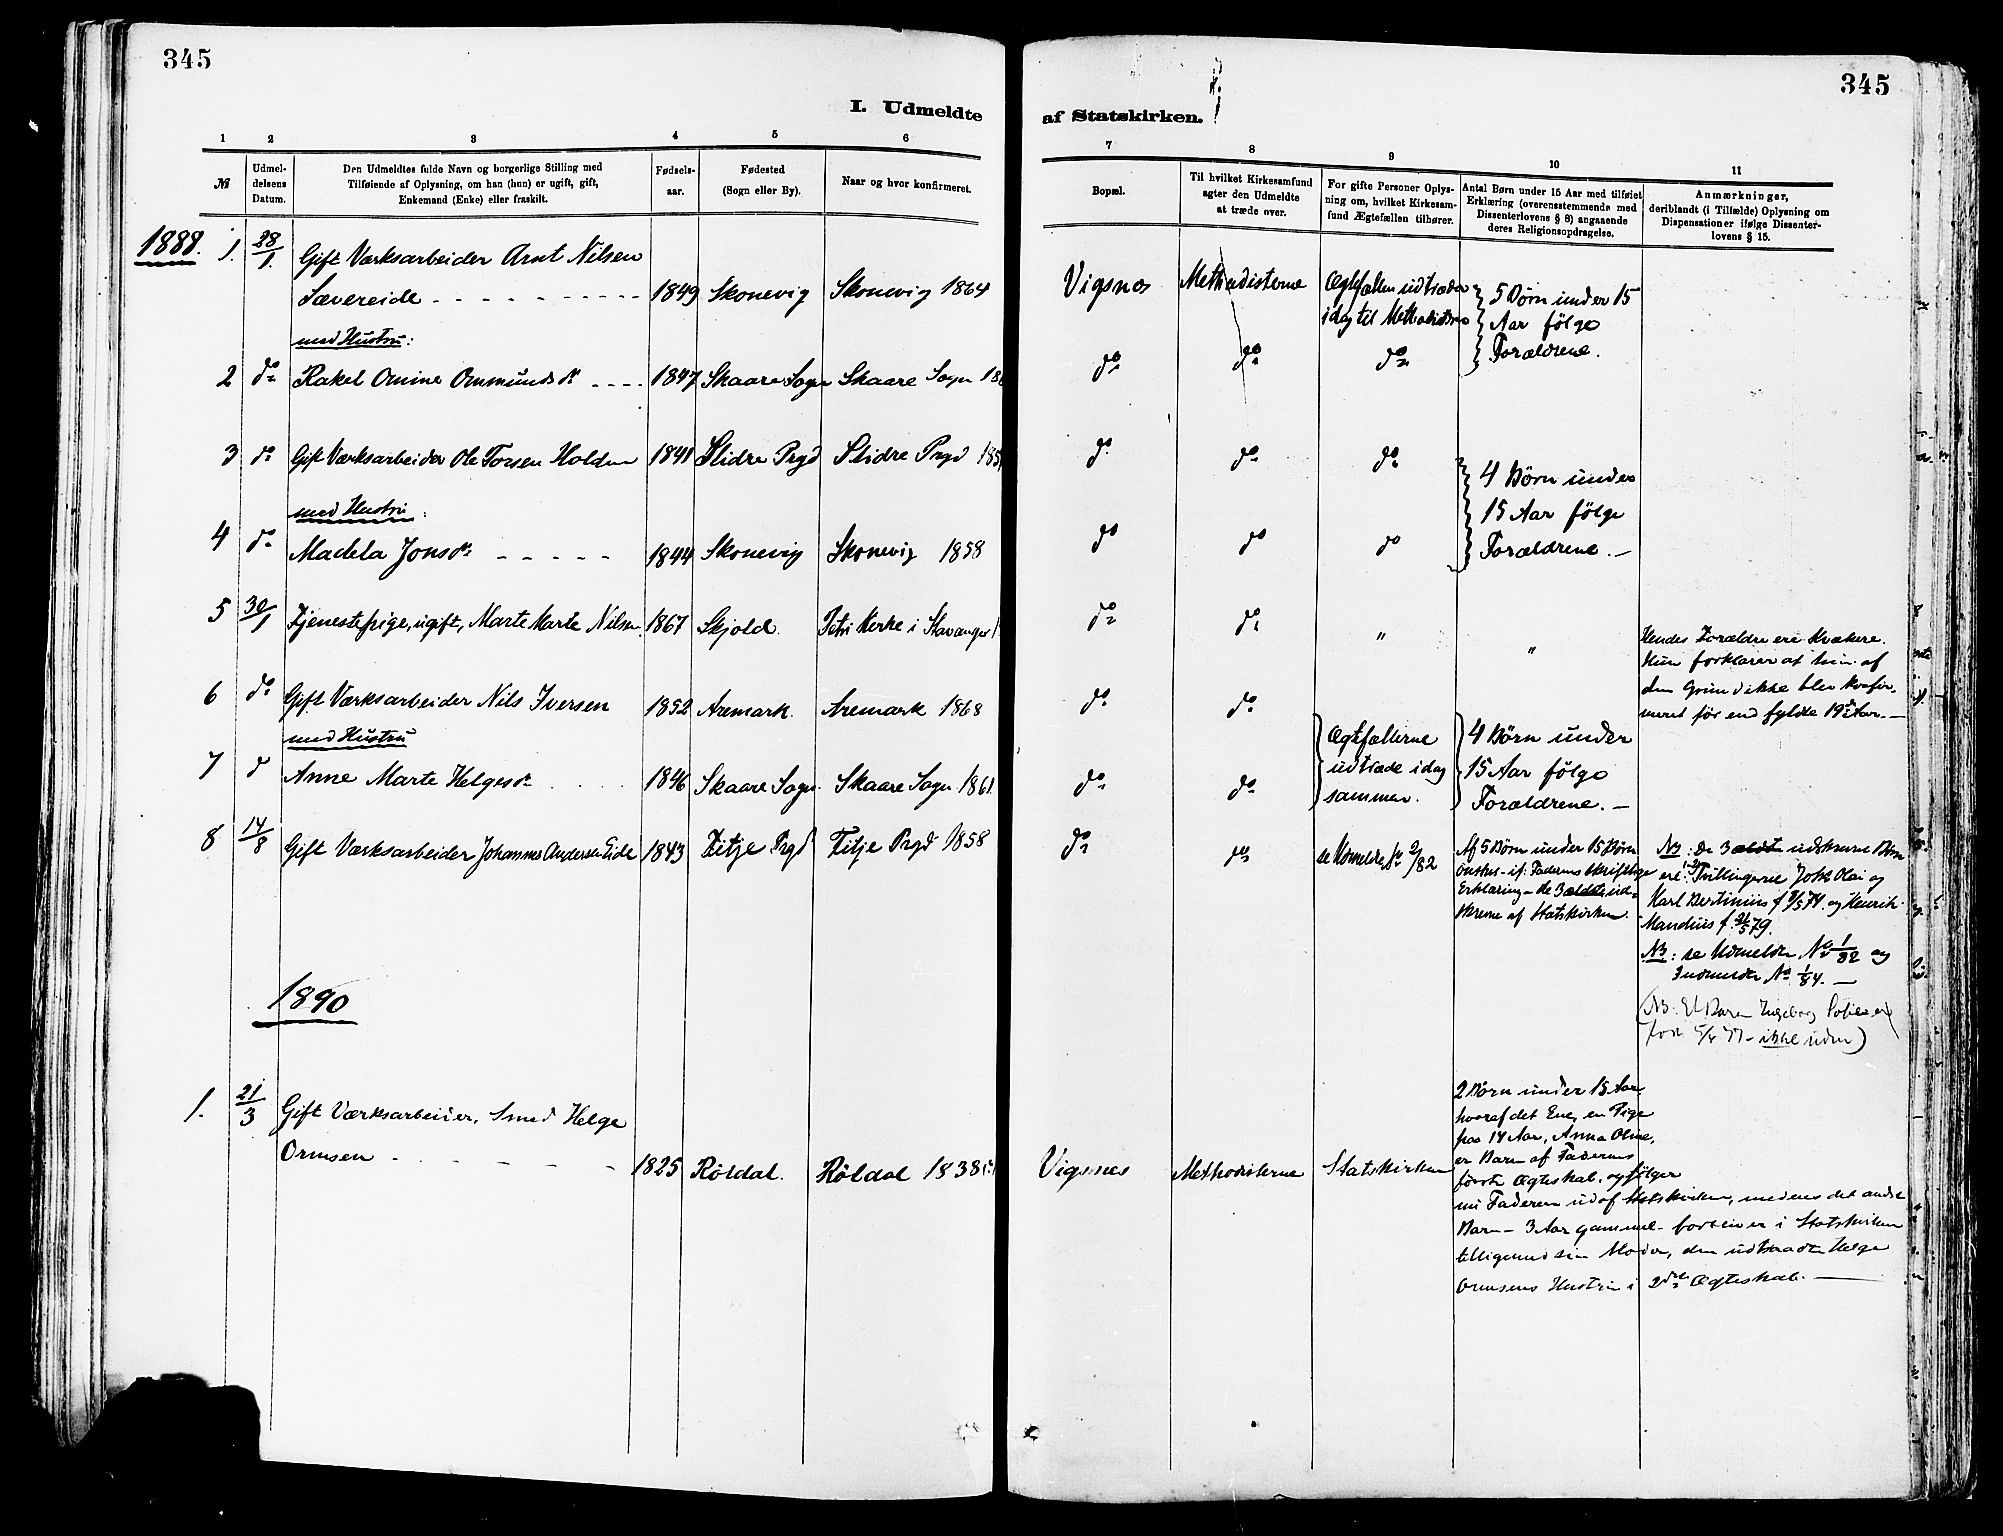 345
345
I. Udmeldte
af Statskirken.
1 2 3 4 5 6
7 8 9 10 11
№
Udmel-
delsens
Datum.
Den Udmeldtes fulde Navn og borgerlige Stilling med
Tilføiende af Oplysning, om han (hun) er ugift, gift,
Enkemand (Enke) eller fraskilt.
Fødsels-
aar.
Fødested
(Sogn eller By).
Naar og hvor konfirmeret.
Bopæl.
Til hvilket Kirkesamfund
agter den Udmeldte
at træde over.
For gifte Personer Oplys-
ning om, hvilket Kirkesam-
fund Ægtefællen tilhører.
Antal Børn under 15 Aar med tilføiet
Erklæring (overensstemmende med
Dissenterlovens § 8) angaaende
deres Religionsopdragelse.
Anmærkninger,
deriblandt (i Tilfælde) Oplysning om
Dispensationer ifølge Dissenter-
lovens § 15.
1888.
1. 28/1. Gift Værksarbeider Arnt Nilsen
Sævereide 1849 Skonevig Skonevig 1864
Vigsnes Methodisterne Ægtefællen udtræder
idag til Methodisterne
5 Børn under 15
Aar følge
Forældrene.
med Hustru:
2 do Rakel Omine Ommundsdr 1847 Skaare Sogn Skaare Sogn
do do do
3 do Gift Værksarbeider Ole Torsen Holden 1841 Slidre Prgd Slidre Prgd
do do do
4 Børn under
15 Aar følge
Forældrene.
med Hustru:
4 do Madela Jonsdr 1844 Skonevig Skonevig 1858
do do do
5 30/1 Tjenestepige, ugift, Marte Marte Nilsen 1867 Skjold. Petri Kirke i Stavanger
do do " "
Hendes Forældre ere Kvækere.
Hun forklarer at hun af
den Grund ikke blev konfir-
meret før end fyldte 19 Aar.
6 do Gift Værksarbeider Nils Iversen 1852 Aremark. Aremark 1868
do do
med Hustru
7 d Anne Marte Helgesdr 1846 Skaare Sogn. Skaare Sogn 1861.
do do
Ægtefællerne
udtræde idag
sammen.
4 Børn under
15 Aar følge
Forældrene.
8 14/8 Gift Værksarbeider Johannes Andersen Eide 1843 Fitje Prgd Fitje Prgd 1858
do do se Udmeldte No 2/82
Af 5 Børn under 15 Børn
ønskes - if. Faderens skriftlige
Erklæring - de 3 ældste ud-
skrevne af Statskirken.
NB: De 3 ældste udskrevne Børn
ere: Tvillingerne Johs Olai og
Karl Bertinius f 9/5 74. og Henrik
Mandius f. 21/5 79.
NB: se Udmeldte No 1/82 og
Indmeldte No 1/84.
(NB: Et Barn Ingeborg
født 5/4 77 - ikke uden)
1890
1. 21/3 Gift Værksarbeider, Smed Helge
Ormsen 1825 Röldal. Röldal 1838
Vigsnes Methodisterne Statskirken
2 Børn under 15 Aar
hvoraf det Ene, en Pige
paa 14 Aar, Anna Oline,
er Barn af Faderens
første Ægteskab, og følger
nu Faderen ud af Statskirken, medens det andet
Barn - 3 Aar gammel - forbliver i Statskirken
tilligemed sin Moder, den udtraadte Helge
Ormsens Hustru i 2det Ægteskab.